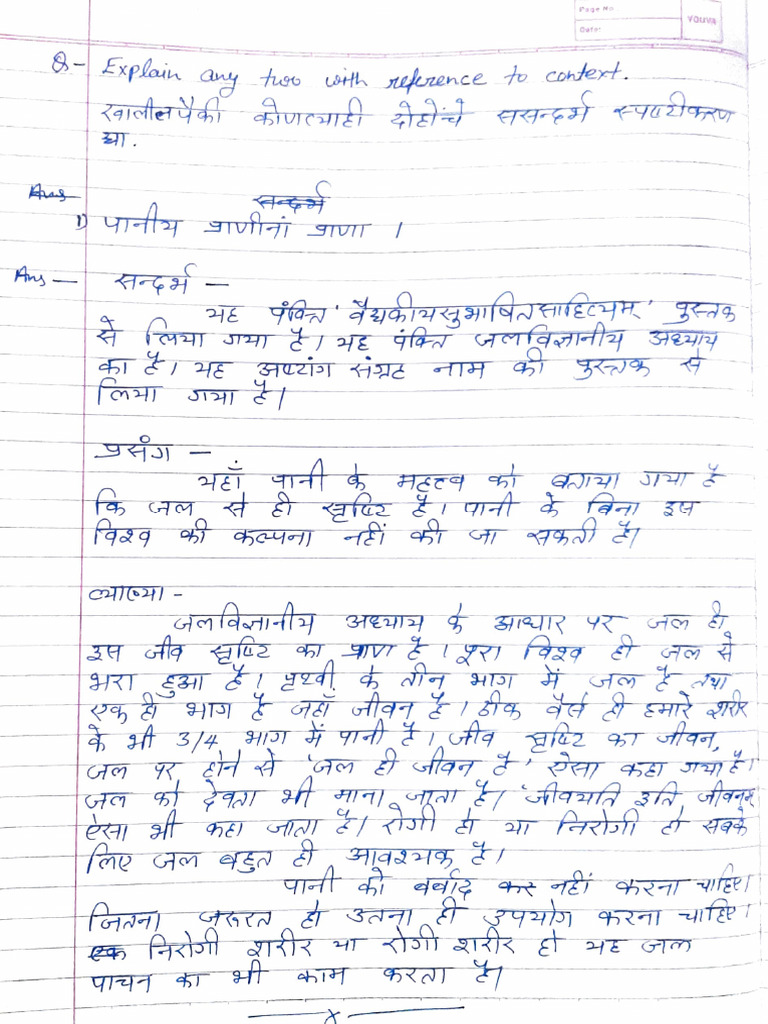 Page No
Date:
YOUVA
Q- Explain any two with reference to context.
खालीलपैकी कोणत्याही दोहोंचे ससन्दर्भ स्पष्टीकरण
द्या.
Ans
सन्दर्भ
1) पानीय प्राणीनां प्राणा ।
Ans — सन्दर्भ —
यह पंक्ति 'वैद्यकीयसुभाषितसाहित्यम्' पुस्तक
से लिया गया है। यह पंक्ति जलविज्ञानीय अध्याय
का है। यह अष्टांग संग्रह नाम की पुस्तक से
लिया गया है।
प्रसंग —
यहाँ पानी के महत्त्व को बताया गया है
कि जल से ही सृष्टि है। पानी के बिना इस
विश्व की कल्पना नहीं की जा सकती है।
व्याख्या -
जलविज्ञानीय अध्याय के आधार पर जल ही
इस जीव सृष्टि का प्राण है। पूरा विश्व ही जल से
भरा हुआ है। पृथ्वी के तीन भाग में जल है तथा
एक ही भाग है जहाँ जीवन है। ठीक वैसे ही हमारे शरीर
के भी 3/4 भाग में पानी है। जीव सृष्टि का जीवन,
जल पर होने से 'जल ही जीवन है' ऐसा कहा गया है।
जल को देवता भी माना जाता है। 'जीवयति इति जीवनम्'
ऐसा भी कहा जाता है। रोगी हो या निरोगी हो सबके
लिए जल बहुत ही आवश्यक है।
पानी को बर्बाद कर नहीं करना चाहिए।
जितना जरूरत हो उतना ही उपयोग करना चाहिए।
एक निरोगी शरीर या रोगी शरीर हो यह जल
पाचन का भी काम करता है।
x